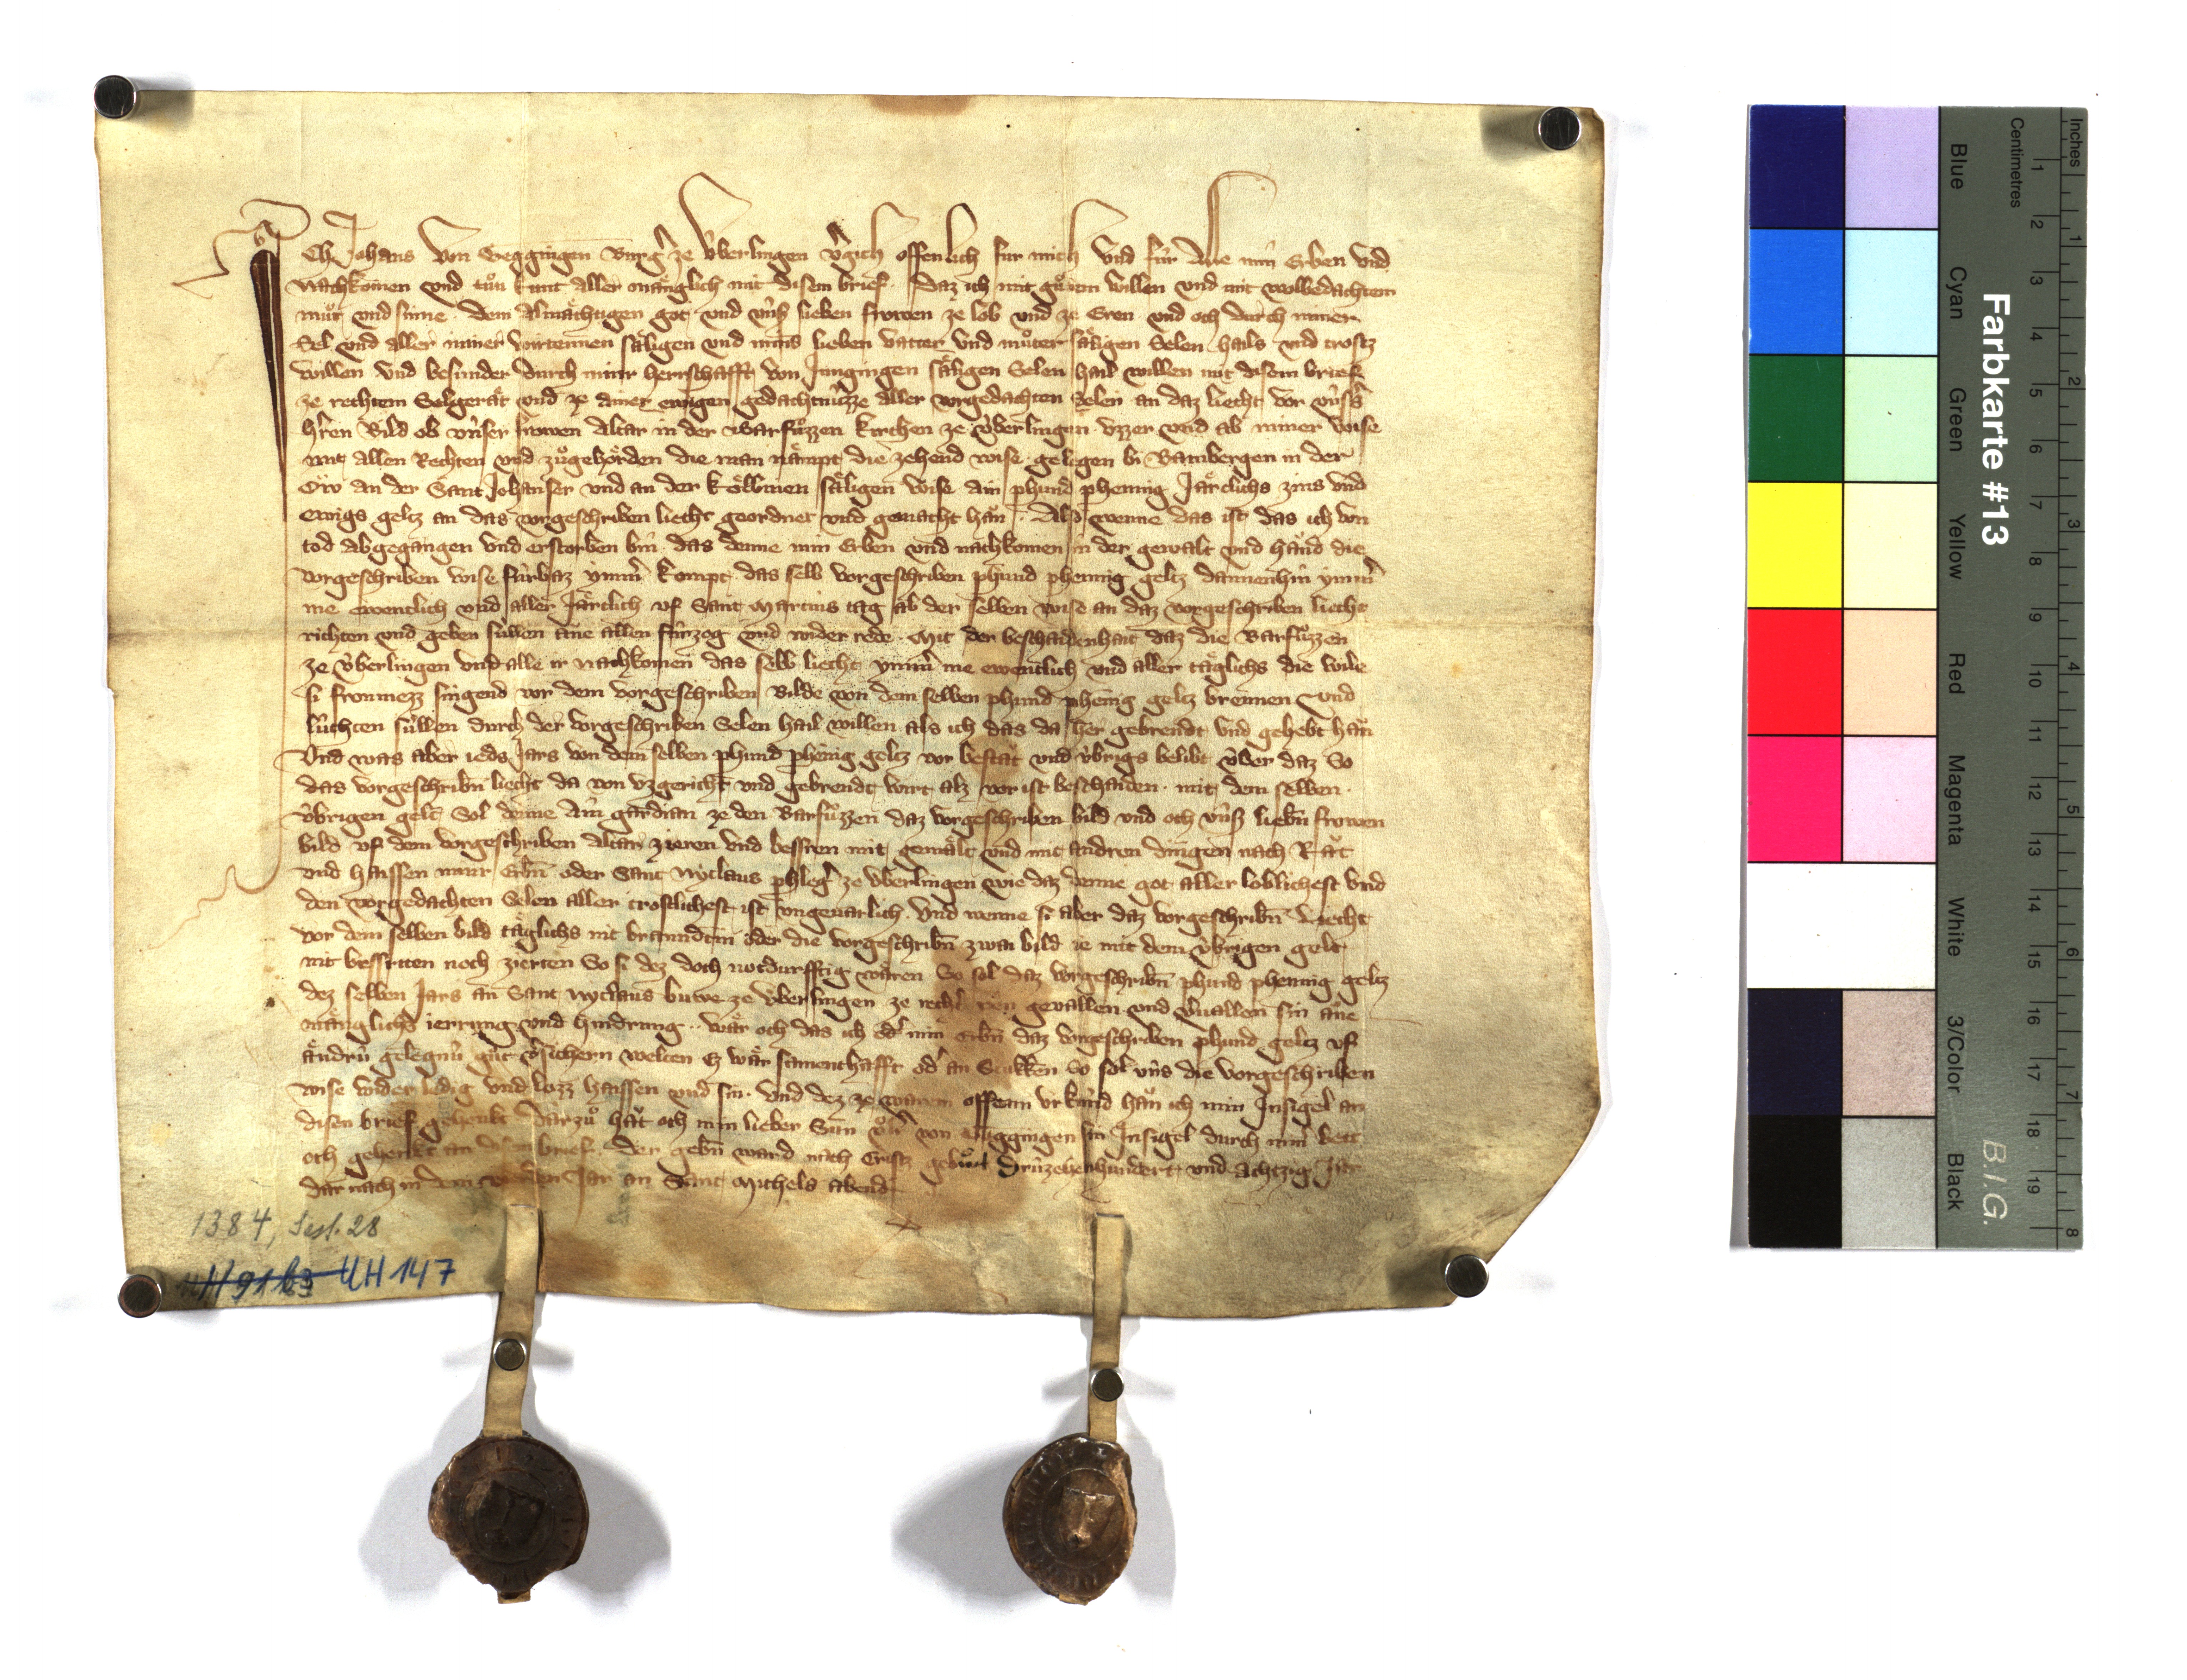 Ich Johans von Geggingen Burg̉ ze V̊berlingen v̉gich offenlich fur mich vnd fúr alle min Erben vnd
Nachkomen vnd tůn kunt aller mänglich mit disem brief. Daz ich mit gůtem willen vnd mit wolbedachtem
můt vnd sinne. dem Almächtigen got vnd vnsz lieben frowen ze lob vnd ze Eren vnd och durch miner
Sel vnd aller miner säligen vnd mins lieben vatter vnd můter säligen Selen hails vnd trostz
willen vnd besunder durch miner herrschafft von Jungingen säligen Selen hail willen mit disem brief
ze rechtem Selgerät vnd ze ainer ewigen gedächtnúzze aller vorgedachten Selen an daz liecht vor vnsers
herren Bild ob vnser frowen Altar in der Barfůzzen kirchen ze V́berlingen vzzer vnd ab miner wise
mit allen Rechten vnd zůgehörden die man nämpt die zehend wise gelegen bi Bambergen in der
Ow an der Sant Johanser vnd an der Köllinen säligen wise ain phund phennig Järclichs zins vnd
ewigs geltz an das vorgeschriben liecht geordnet vnd gemacht hän. Also wenne das ist das ich von
tod abgegangen vnd erstorben bin. das denne min Erben vnd nachkomen in der gewalt vnd hand die
vorgeschriben wise fúrbaz ymm̉ kompt. das selb vorgeschriben phund phennig geltz dannenhin ymm̉
me ewenclich vnd aller Järclich vf Sant Martins tag ab der selben wise an daz vorgeschriben liecht
richten vnd geben súllen ane allen fúrzog vnd wider rede. Mit der beschaidenhait daz die Barfůzzen
ze V́berlingen vnd alle ir nachkomen das selb liecht ymm̉ me ewenclich vnd aller täglichs die wile
si fronmezz singend vor dem vorgeschriben Bilde von dem selben phund phenig geltz brennen vnd
lúchten súllen durch der vorgeschriben Selen hail willen als ich das da her gebrendt vnd gehebt hän
Vnd was aber ieds Jars von dem selben phund phenig geltz vor bestat vnd v́brigs belibt v́ber daz So
das vorgeschribn̄ liecht da von vzgericht vnd gebrendt wirt alz vor ist beschaiden. mit dem selben.
v́brigen gelt Sol denne ain gardian ze den Barfůzzen daz vorgeschriben bild vnd och vnsz liebn̄ frowen
bild vf dem vorgeschriben Altar zieren vnd bessren mit gemält vnd mit andren dingen nach Rät
vnd haissen miner Erbn̄ oder Sant Nyclaus phleg̉ ze V́berlingen wie daz denne got aller loblichest vnd
den vorgedachten Selen aller trostlichest ist vngeuarlich. Vnd wenne si aber daz vorgeschribn̄ Liecht
vor dem selben bild täglichs nit branndtin oder die vorgeschribn̄ zwai bild ie mit dem v́brigen gelt
nit bessrtten noch zierten So si dez doch notdurfftig wären So sol daz vorgeschribn̄ phund phennig geltz
dez selben Jars an Sant Nyclaus buwe ze V́berlingen ze geuallen vnd v̉uallen sin äne
mänglichs ierrung vnd hindrung. wär och das ich od̉ min Erbn̄ daz vorgeschriben phund geltz vf
ändrú gelegnú gůt v̉sichern welten Ez wär samenthafft od̉ an Stukken So sol úns die vorgeschriben
wise wider ledig vnd lozz haissen vnd sin. Vnd dez ze warem offenn vrkúnd hän ich min Insigel an
disen brief gehenkt Darzů hät och min lieber Sun Ůlr̉ von Geggingen sin Insigel durch miner bett
och gehenkt an disen brief. Der gebn̄ ward nach Cristz gebůrt Drúzehenhundert vnd achtzig Jar
dar nach in dem vierden Jar an Sant Michels abend
1384, Sept. 28
H 91 b3 UH 147
Farbkarte #13
B.I.G.
Inches 1 2 3 4 5 6 7 8
Centimetres 1 2 3 4 5 6 7 8 9 10 11 12 13 14 15 16 17 18 19
Blue Cyan Green Yellow Red Magenta White 3/Color Black